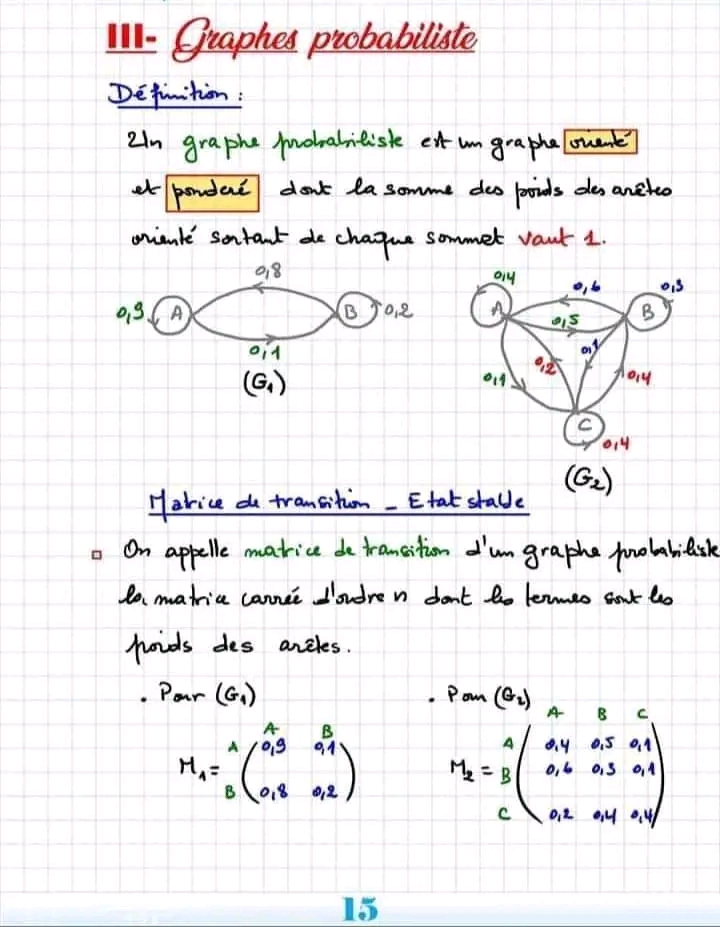 III- Graphes probabiliste
Définition :
Un graphe probabiliste est un graphe orienté
et ponderé dont la somme des poids des arêtes
orienté sortant de chaque sommet vaut 1.
0,8
0,9 A B 0,2
0,1
(G₁)
0,4 0,6 0,3
A B
0,5
0,1 0,2 0,1 0,4
C
0,4
(G₂)
Matrice de transition - Etat stable
On appelle matrice de transition d'un graphe probabiliste
la matrice carrée d'ordre n dont les termes sont les
poids des arêtes.
. Pour (G₁)
A B
M₁ = A 0,9 0,1
B 0,8 0,2
. Pour (G₂)
A B C
A 0,4 0,5 0,1
M₂ = B 0,6 0,3 0,1
C 0,2 0,4 0,4
15